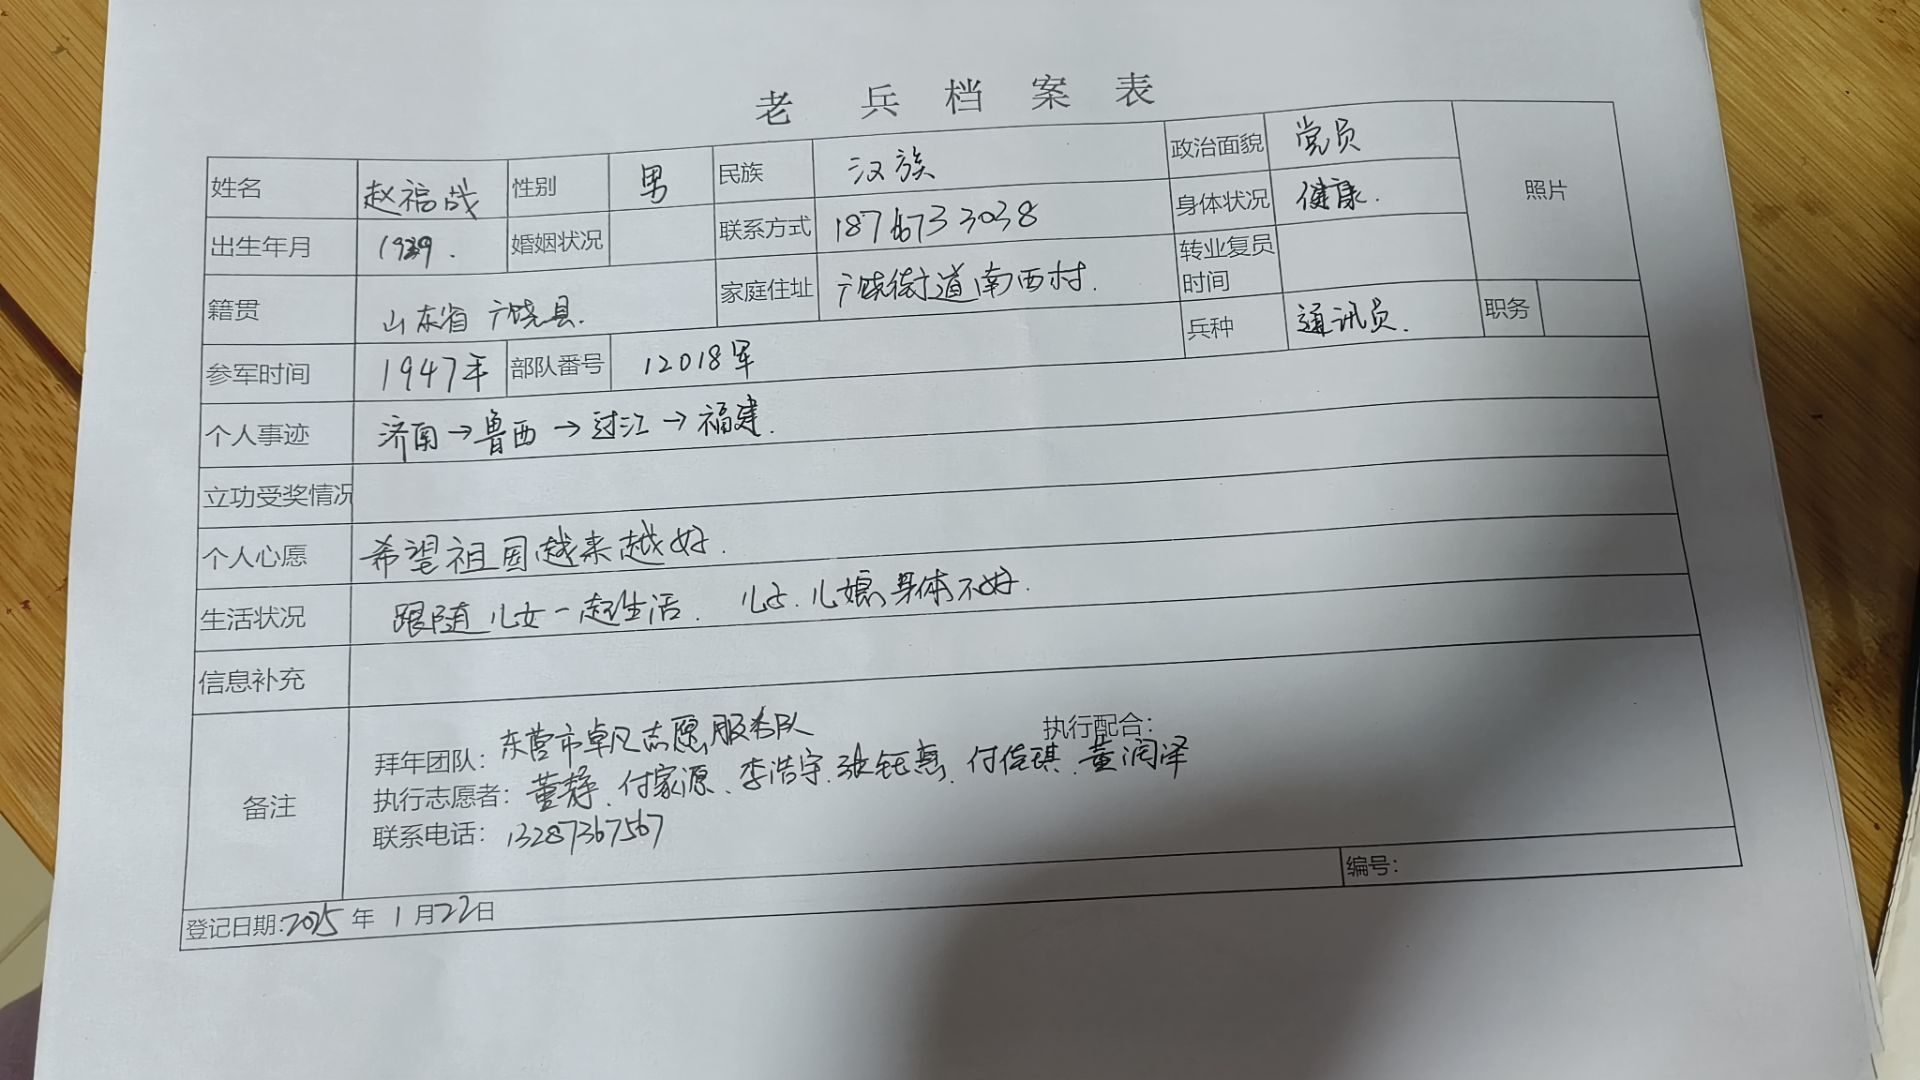 老兵档案表
姓名 赵福战 性别 男 民族 汉族 政治面貌 党员 照片
出生年月 婚姻状况 联系方式 身体状况 健康.
籍贯 山东省广饶县. 家庭住址 广饶街道南西村. 转业复员时间
参军时间 1947年 部队番号 12018军 兵种 通讯员. 职务
个人事迹 济南→鲁西→过江→福建.
立功受奖情况
个人心愿 希望祖国越来越好.
生活状况 跟随儿女一起生活. 儿子.儿媳身体不好.
信息补充
备注
拜年团队: 东营市卓凡志愿服务队 执行配合:
执行志愿者: 董静、付家源、李浩宇、张钰 、付佳琪、董润泽
联系电话: 13287367567
编号:
登记日期:2025年1月22日